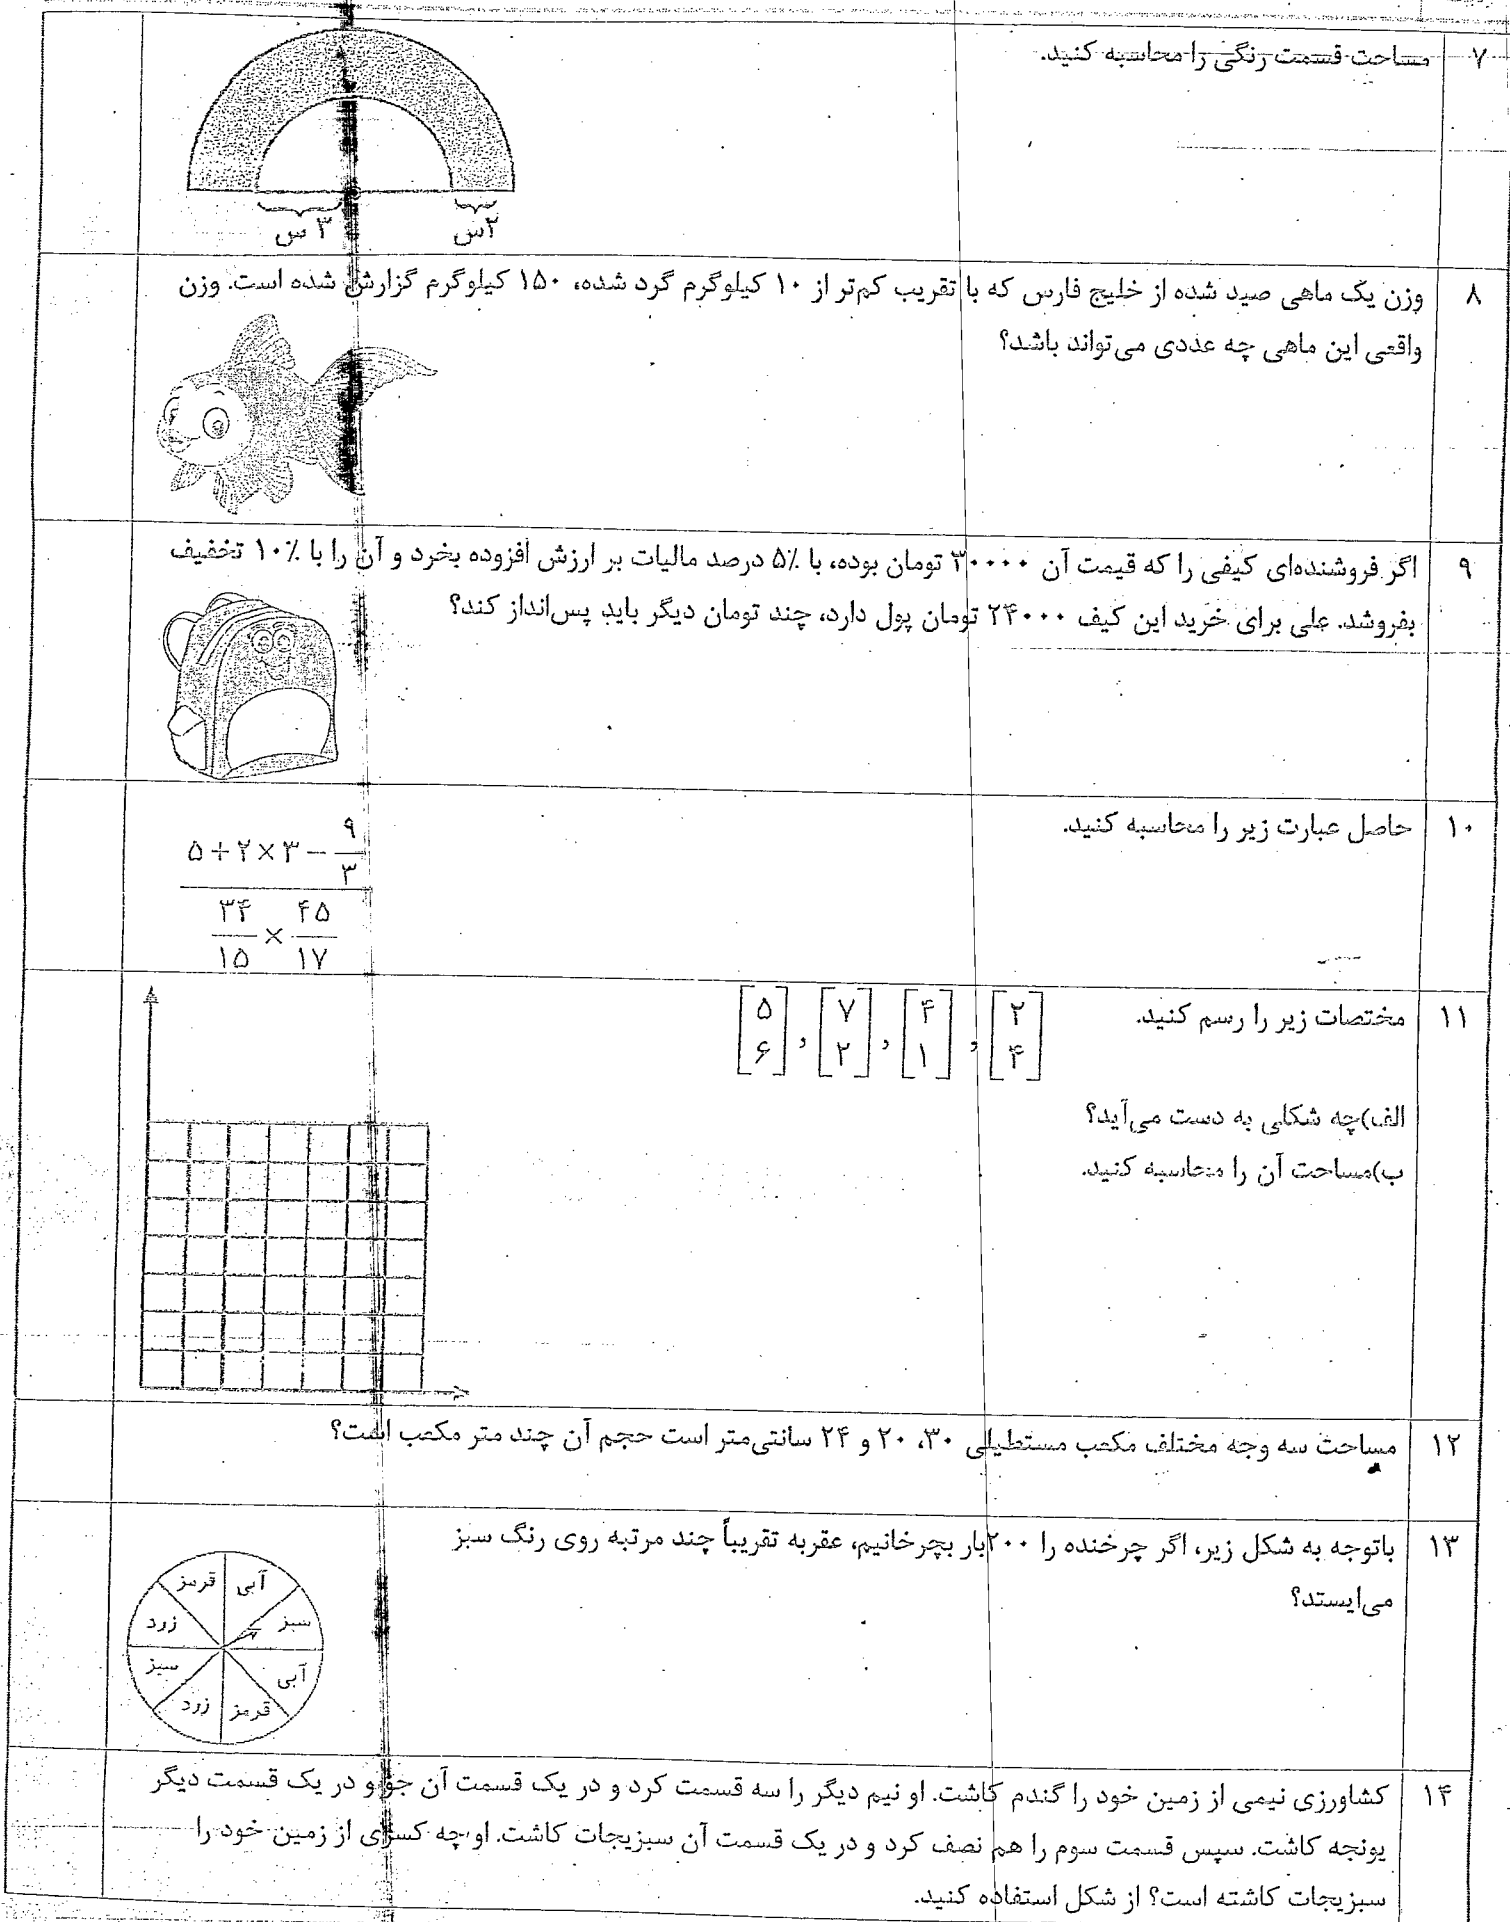 ۷ مساحت قسمت رنگی را محاسبه کنید.
۳ س
۲س
۸ وزن یک ماهی صید شده از خلیج فارس که با تقریب کم‌تر از ۱۰ کیلوگرم گرد شده، ۱۵۰ کیلوگرم گزارش شده است. وزن
واقعی این ماهی چه عددی می‌تواند باشد؟
۹ اگر فروشنده‌ای کیفی را که قیمت آن ۳۰۰۰۰ تومان بوده، با ۵٪ درصد مالیات بر ارزش افزوده بخرد و آن را با ۱۰٪ تخفیف
بفروشد. علی برای خرید این کیف ۲۴۰۰۰ تومان پول دارد، چند تومان دیگر باید پس‌انداز کند؟
۱۰ حاصل عبارت زیر را محاسبه کنید.
۹
۵+۲×۳−
۳
۳۴ ۴۵
×
۱۵ ۱۷
۱۱ مختصات زیر را رسم کنید. [۲ ۴] , [۴ ۱] , [۷ ۲] , [۵ ۶]
الف)چه شکلی به دست می‌آید؟
ب)مساحت آن را محاسبه کنید.
۱۲ مساحت سه وجه مختلف مکعب مستطیلی ۳۰، ۲۰ و ۲۴ سانتی‌متر است حجم آن چند متر مکعب است؟
۱۳ باتوجه به شکل زیر، اگر چرخنده را ۲۰۰بار بچرخانیم، عقربه تقریباً چند مرتبه روی رنگ سبز
می‌ایستد؟
آبی قرمز
سبز زرد
آبی سبز
قرمز زرد
۱۴ کشاورزی نیمی از زمین خود را گندم کاشت. او نیم دیگر را سه قسمت کرد و در یک قسمت آن جو و در یک قسمت دیگر
یونجه کاشت. سپس قسمت سوم را هم نصف کرد و در یک قسمت آن سبزیجات کاشت. او چه کسری از زمین خود را
سبزیجات کاشته است؟ از شکل استفاده کنید.